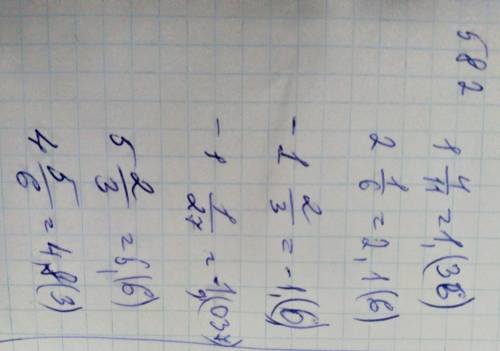 582
1 4/11 = 1,(36)
2 1/6 = 2,1(6)
-1 2/3 = -1,(6)
-1 1/27 = -1,(037)
5 2/3 = 5,(6)
4 5/6 = 4,8(3)